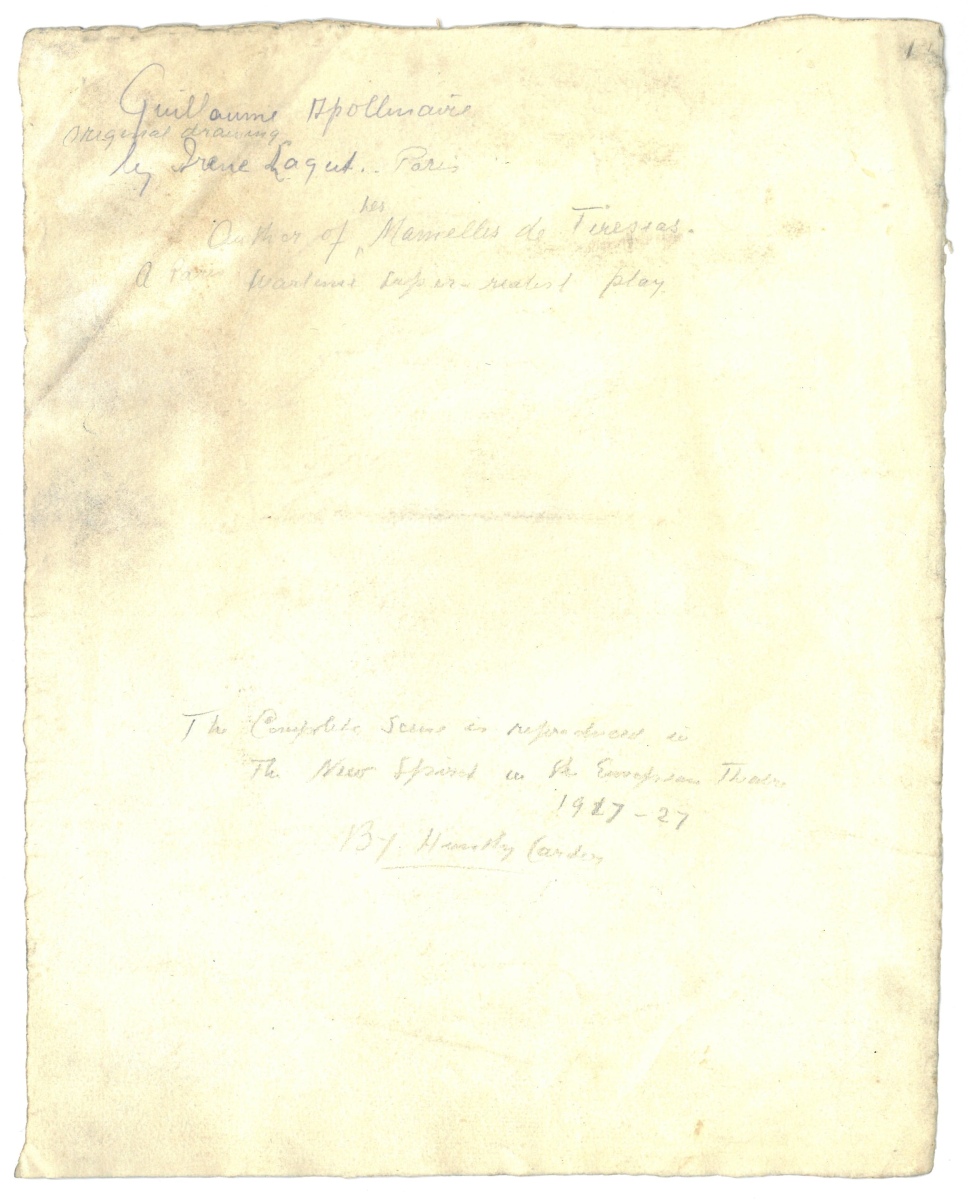 Guillaume Apollinaire
Original drawing
by Irene Lagut.. Paris
Les
Author of Mamelles de Tiresias.
A Paris Wartime Super-realist play
The Complete Scene is reproduced in
The New Spirit in the European Theatre
1917-27
By Huntly Carter